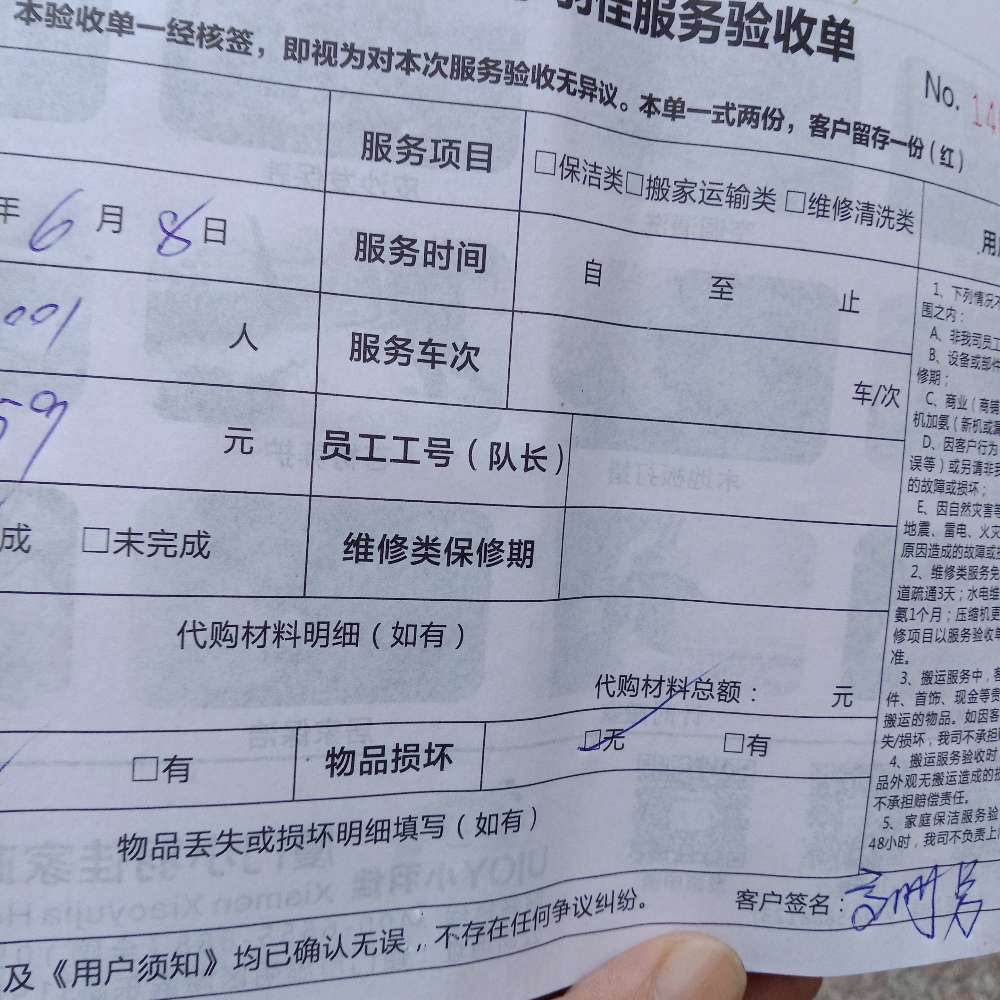 羽佳服务验收单
本验收单一经核签，即视为对本次服务验收无异议。本单一式两份，客户留存一份（红）
No. 14
服务项目 □保洁类□搬家运输类 □维修清洗类
年 6 月 8 日 服务时间 自 至 止
人 服务车次 车/次
59 元 员工工号（队长）
成 □未完成 维修类保修期
代购材料明细（如有）
代购材料总额： 元
□有 物品损坏 □无 □有
物品丢失或损坏明细填写（如有）
客户签名：
及《用户须知》均已确认无误，不存在任何争议纠纷。
用
1、下列情况不
围之内：
A、非我司员工
B、设备或部件
修期；
C、商业（商
机加氨（新机或
D、因客户行为
误等）或另请非
的故障或损坏；
E、因自然灾害等
地震、雷电、火灾
原因造成的故障或
2、维修类服务免
道疏通3天；水电维
氨1个月；压缩机更
修项目以服务验收单
准。
3、搬运服务中，客
件、首饰、现金等贵
搬运的物品。如因客
失/损坏，我司不承担
4、搬运服务验收时
品外观无搬运造成的
不承担赔偿责任。
5、家庭保洁服务验
48小时，我司不负责上